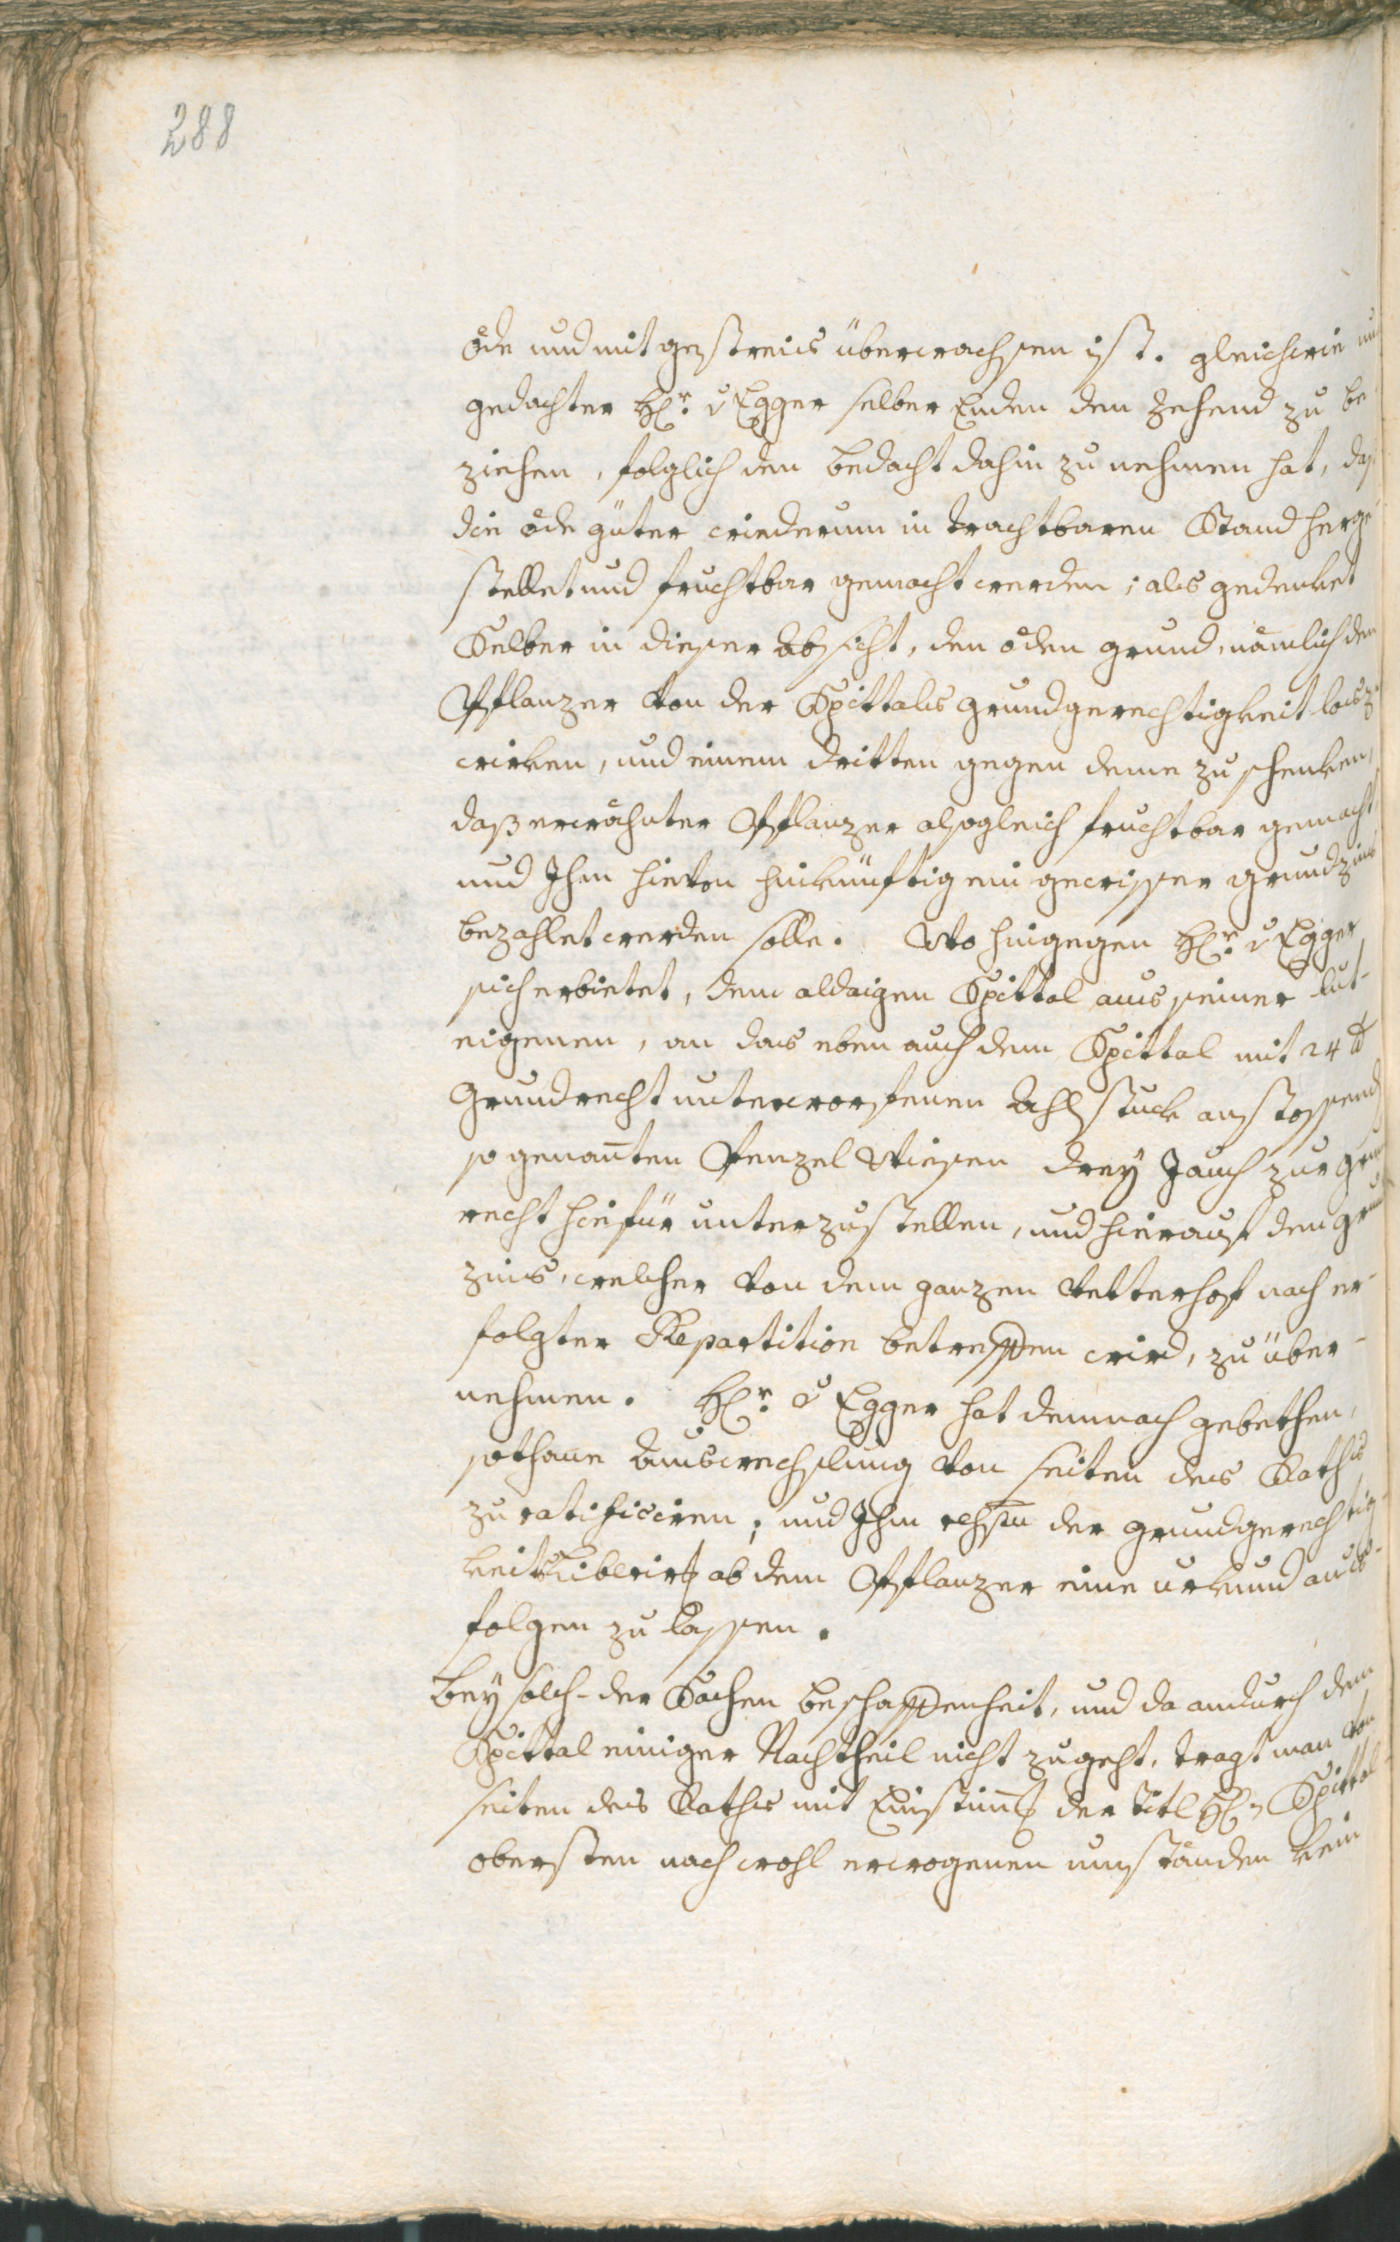 288
öde und mit gestreis überwachsen ist. gleichwie nun
gedachter H:r v Egger selber Enden den Zehend zu be-
ziehen, folglich den bedacht dahin zu nehmen hat, daß
die öde güter wiederum in trachtbaren Stand herge-
stellet und fruchtbar gemacht werden; als gedenket
Selber in dieser Absicht, den öden grund, nämlich den
Pflanzer von der Spittals grundgerechtigkeit los zu
wirken, und einem dritten gegen deme zu schenken,
daß erwähnter Pflanzer alsogleich fruchtbar gemacht
und Ihm hievon hinkünftig ein gewisser grundzins
bezahlet werden solle. Wo hingegen H:r v Egger
sich erbietet, dem aldaigen Spittal aus seiner lut-
eigenen, an das eben auch dem Spittal mit 24
Grundrecht unterworfenen stuck anstossend
so genañten Penzel Wiesen drey Jauch zur grund
recht hiefür unterzustellen, und hierauf den grund
zins, welcher von dem ganzen Vetterhof nach er-
folgter Repartition betreffen wird, zu über-
nehmen. H:r v Egger hat demnach gebethen,
sothane Auswechslung von seiten des Raths
zu ratificiren; und Ihm der grundgerechtig-
keits ab dem Pflanzer eine urkund aus-
folgen zu lassen.
Bey solch-der Sachen beschaffenheit, und da andurch dem
Spittal einiger Nachtheil nicht zugeht, tragt man von
seiten des Raths mit Einstim̃g der Titl H:n Spittal
obersten nach wohl erwogenen umständen kein